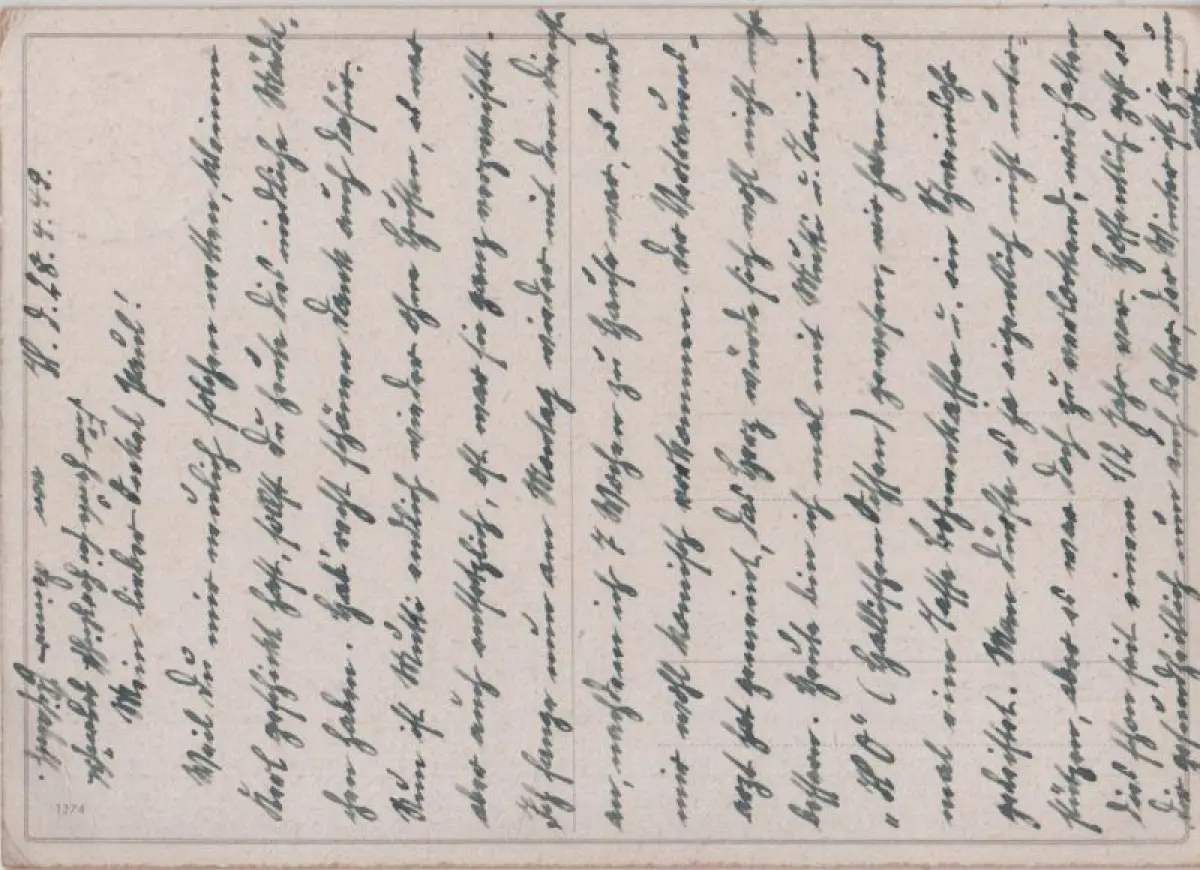 H. d. 28.4.49.
Mein lieber Onkel Paul!
Weil Du mir neulich solchen netten, kleinen
Kerl geschickt hast, sollst Du heute dies niedliche Mädel
haben. Hab' recht schönen Dank auch dafür.
Nun ist Mutti endlich wieder ohne Husten, es war
aber auch entsetzlich, oft war sie ganz verzweifelt.
Ich fange nun am Montag wieder mit dem Dienst
an, nachdem ich 7 Wochen zu Hause war, es wird
mir recht komisch vorkommen. Der Vertrauens-
arzt hat gemeint, das Herz würde sich wohl nicht mehr
bessern. Heute bin ich mal mit Mutti u. Tani im
"HO" (Hallischen) gewesen, wir haben uns
mal eine Tasse Bohnenkaffee u. ein
geleistet. Man dürfte es ja eigentlich nicht unter-
stützen, aber es war doch zu verlockend, wir hatten
dies schon seit einem 1/2 Jahr vor. Hoffentlich geht es
Dir gesundheitlich nun auch besser, der Winter ist ja nun
1274